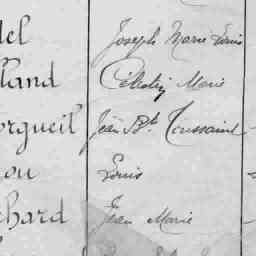 del Joseph Marie Louis
lland Célestin Marie
orgueil Jean Bte Toussaint
ou Louis
chard Jean Marie